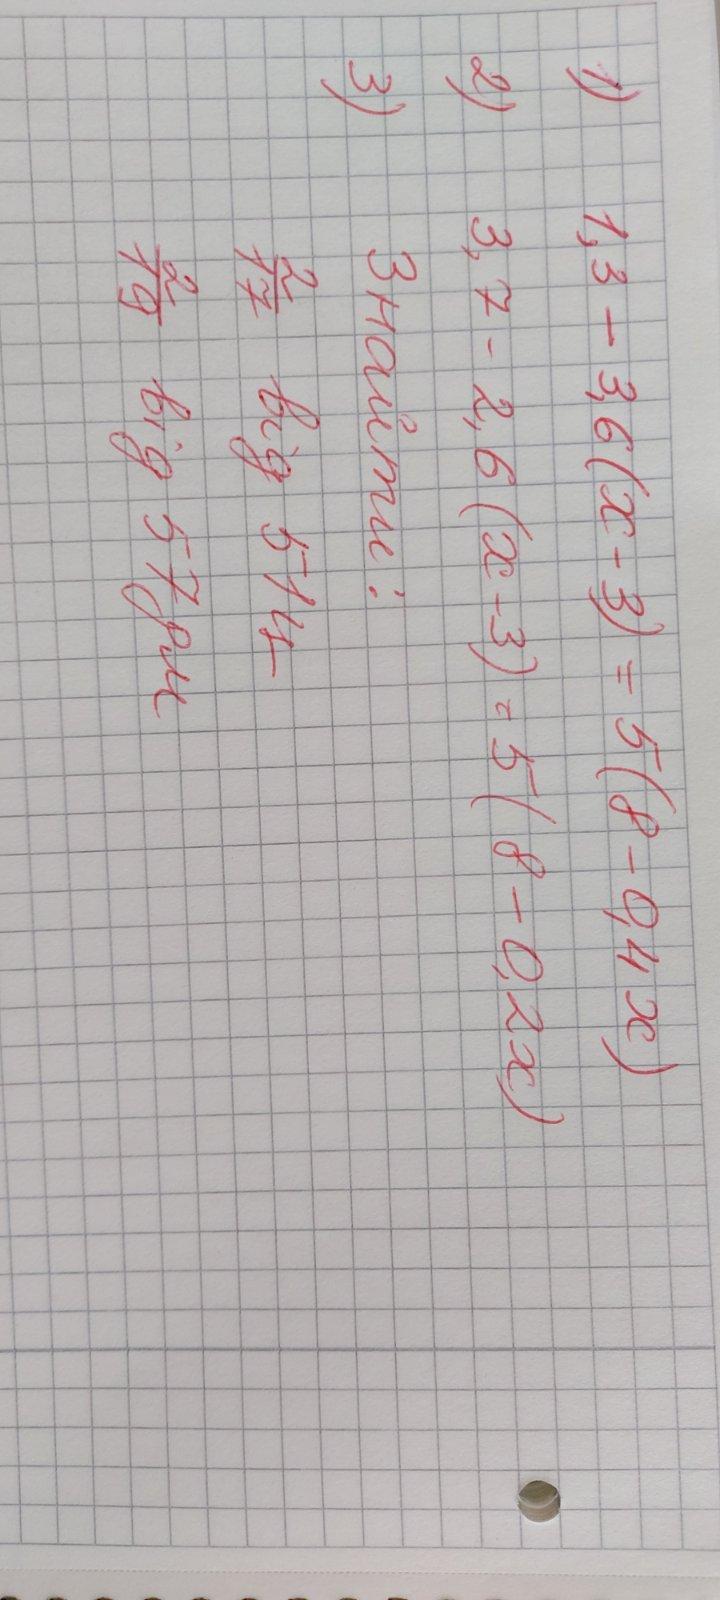 1) 1,3 - 3,6(x - 3) = 5(8 - 0,4x)
2) 3,7 - 2,6(x - 3) = 5(8 - 0,2x)
3) Знайти:
2/17 від 51ц
2/19 від 57дм